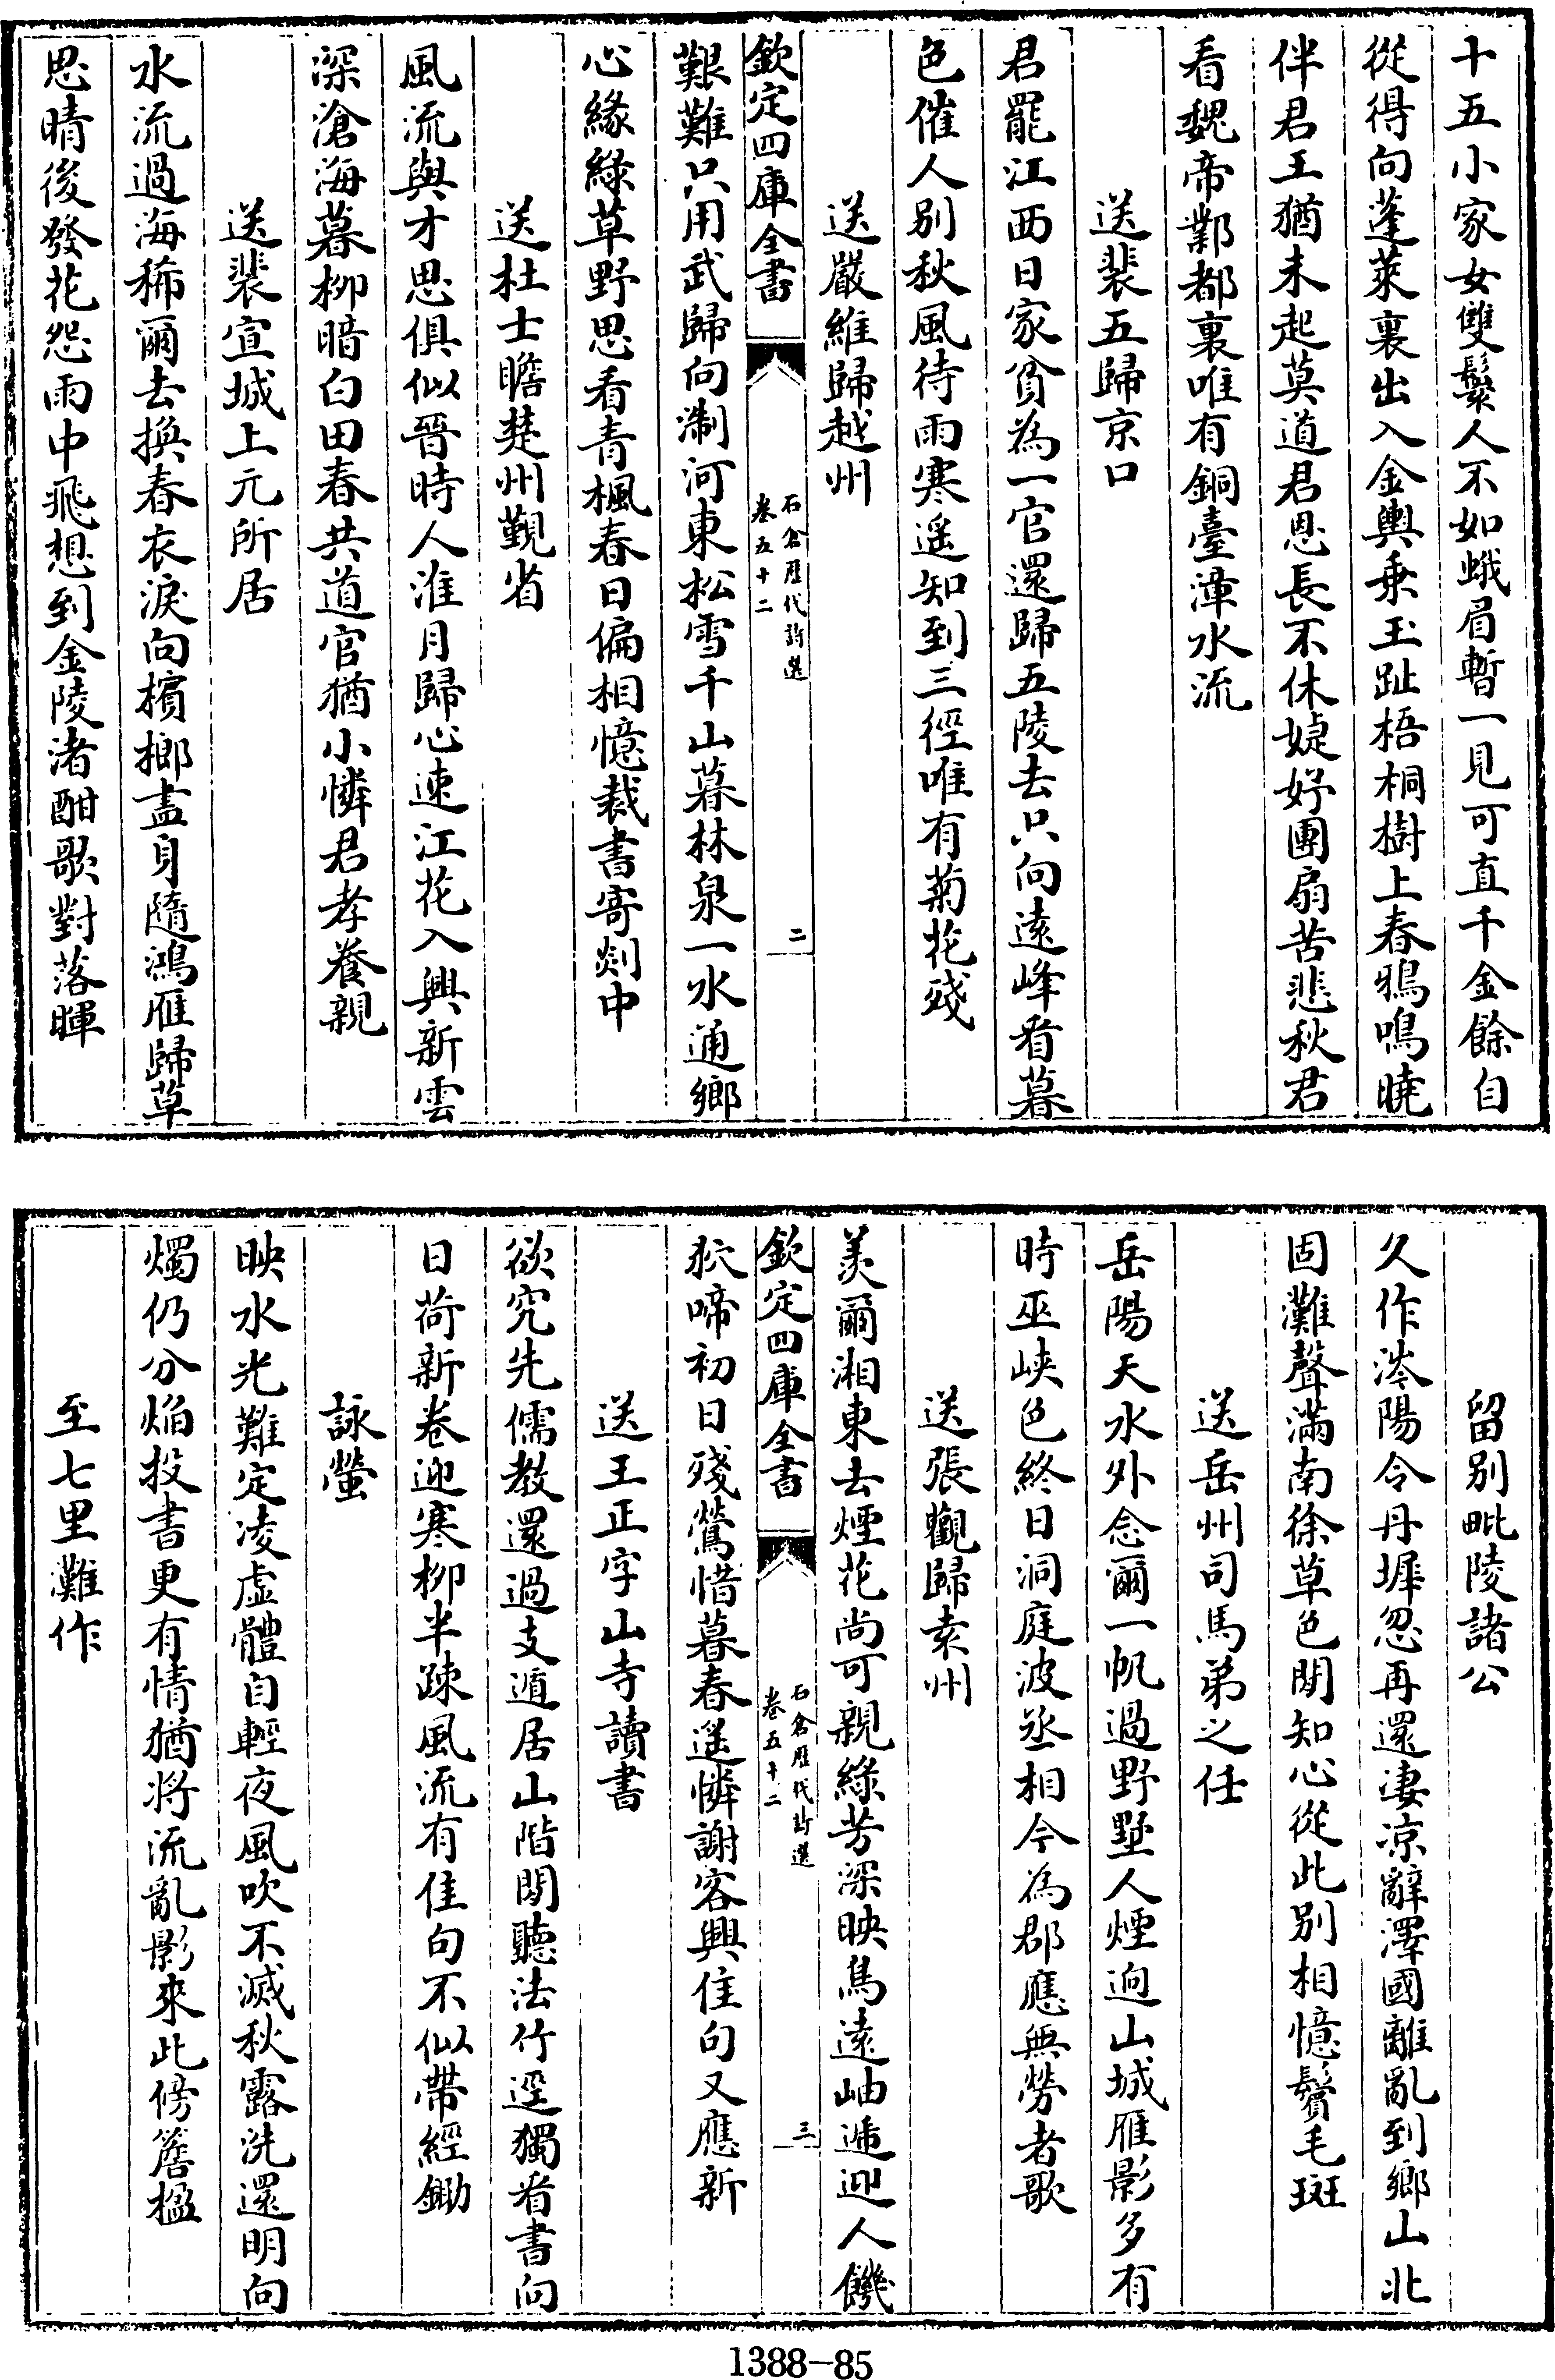 十五小家女雙鬟人不如蛾眉暫一見可直千金餘自
從得向蓬萊裏出入金輿乗玉趾梧桐樹上春鴉鳴曉
伴君王猶未起莫道君恩長不休婕妤團扇苦悲秋君
看魏帝鄴都裏唯有銅臺漳水流
送裴五歸京口
君罷江西日家貧為一官還歸五陵去只向遠峰看暮
色催人别秋風待雨寒遥知到三徑唯有菊花殘
送嚴維歸越州
欽定四庫全書
石倉歷代詩選
卷五十二
二
艱難只用武歸向淛河東松雪千山暮林泉一水通鄉
心緣緑草野思看青楓春日偏相憶裁書寄剡中
送杜士瞻楚州覲省
風流與才思俱似晉時人淮月歸心速江花入興新雲
深滄海暮柳暗白田春共道官猶小憐君孝養親
送裴宣城上元所居
水流過海稀爾去換春衣淚向檳榔盡身隨鴻雁歸草
思晴後發花怨雨中飛想到金陵渚酣歌對落暉
留别毗陵諸公
久作涔陽令丹墀忽再還淒凉辭澤國離亂到鄉山北
固灘聲滿南徐草色閒知心從此别相憶鬢毛斑
送岳州司馬弟之任
岳陽天水外念爾一帆過野墅人煙迥山城雁影多有
時巫峽色終日洞庭波丞相今為郡應無勞者歌
送張觀歸袁州
羨爾湘東去煙花尚可親緑芳深映鳥遠岫遞迎人饑
欽定四庫全書
石倉歷代詩選
卷五十二
三
狖啼初日殘鶯惜暮春遥憐謝客興佳句又應新
送王正字山寺讀書
欲究先儒教還過支遁居山階閒聽法竹逕獨看書向
日荷新卷迎寒柳半疎風流有佳句不似帶經鋤
詠螢
映水光難定凌虚體自輕夜風吹不滅秋露洗還明向
燭仍分焰投書更有情猶將流亂影來此傍簷楹
至七里灘作
1388—85